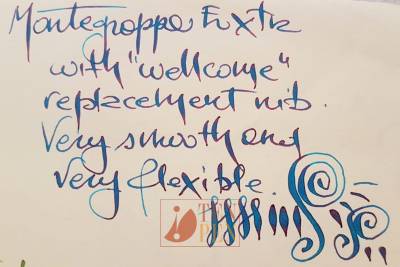 Montegrappa Extra
with "wellcome"
replacement nib.
Very smooth and
very flexible.
TEX
PEN